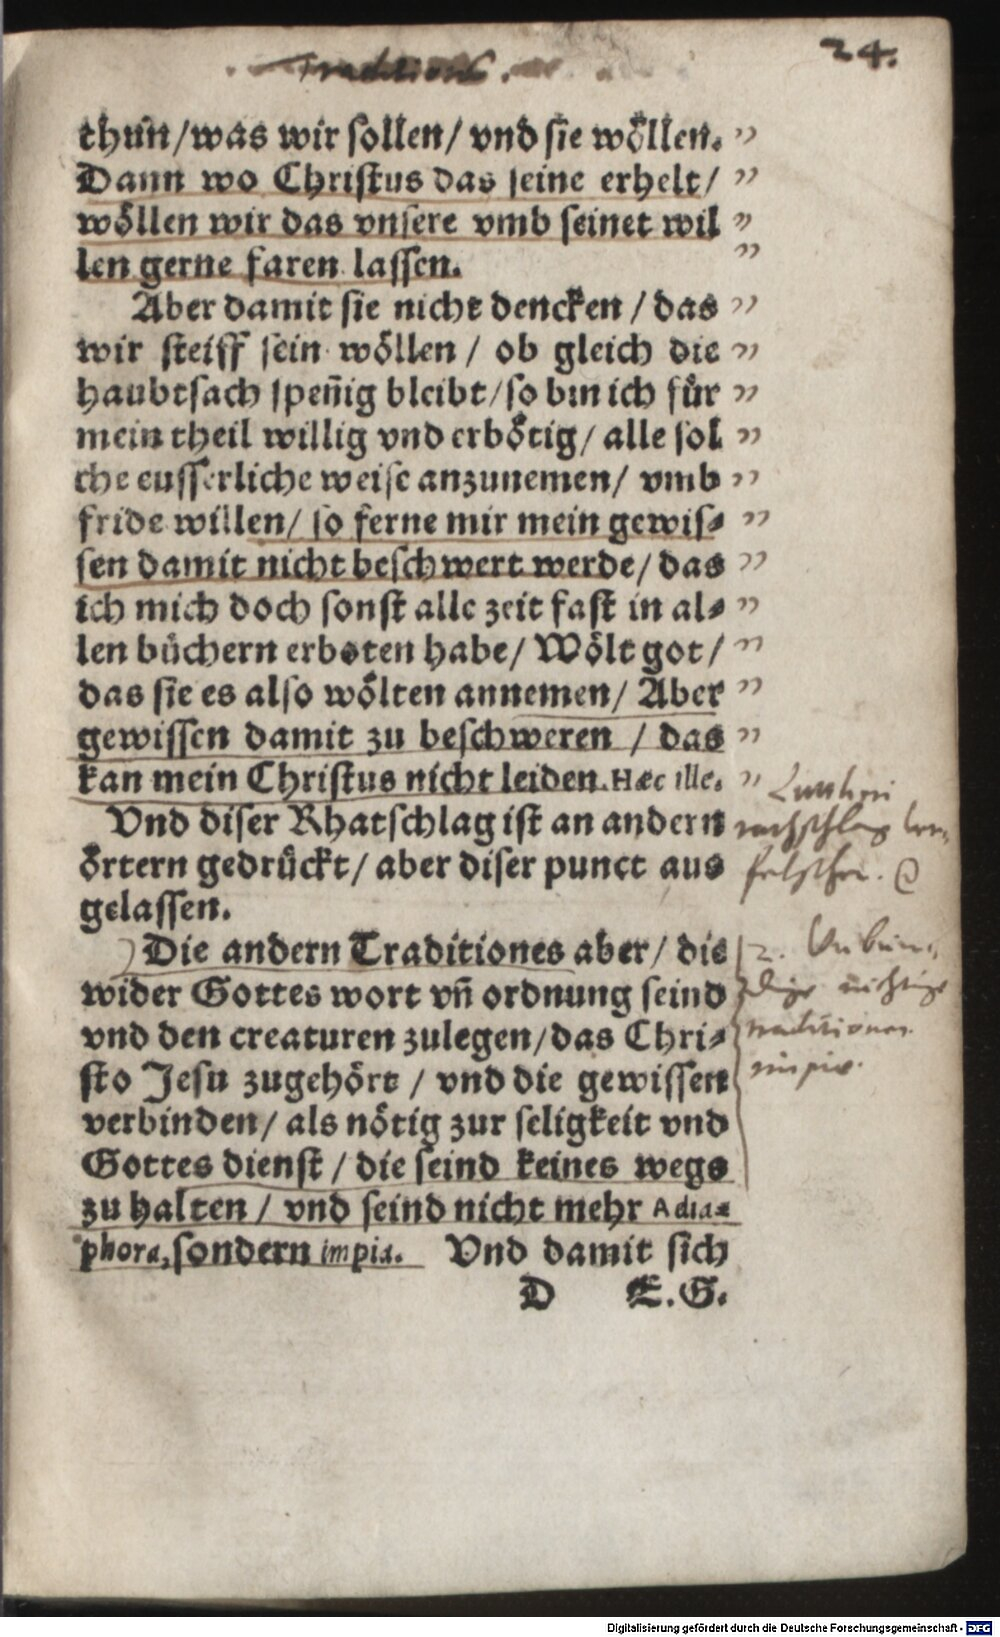 Traditions.
24.
thun/was wir sollen/ vnd sie wöllen.
Dann wo Christus das seine erhelt/
wöllen wir das vnsere vmb seinet wil
len gerne faren lassen.
Aber damit sie nicht dencken / das
wir steiff sein wöllen / ob gleich die
haubtsach speñig bleibt/so bin ich für
mein theil willig vnd erbötig/ alle sol
che eusserliche weise anzunemen/ vmb
fride willen/ so ferne mir mein gewis⸗
sen damit nicht beschwert werde/ das
ich mich doch sonst alle zeit fast in al⸗
len büchern erboten habe/ Wölt got/
das sie es also wölten annemen/ Aber
gewissen damit zu beschweren / das
kan mein Christus nicht leiden. Hæc ille.
Vnd diser Rhatschlag ist an andern
örtern gedrückt/ aber diser punct aus
gelassen.
Die andern Traditiones aber/ die
wider Gottes wort vñ ordnung seind
vnd den creaturen zulegen/das Chri⸗
sto Jesu zugehört / vnd die gewissen
verbinden/ als nötig zur seligkeit vnd
Gottes dienst / die seind keines wegs
zu halten / vnd seind nicht mehr Adia⸗
phora, sondern impia. Vnd damit sich
D E.G.
Lutheri
rathschlag
2.
traditiones
impiæ.
Digitalisierung gefördert durch die Deutsche Forschungsgemeinschaft - DFG